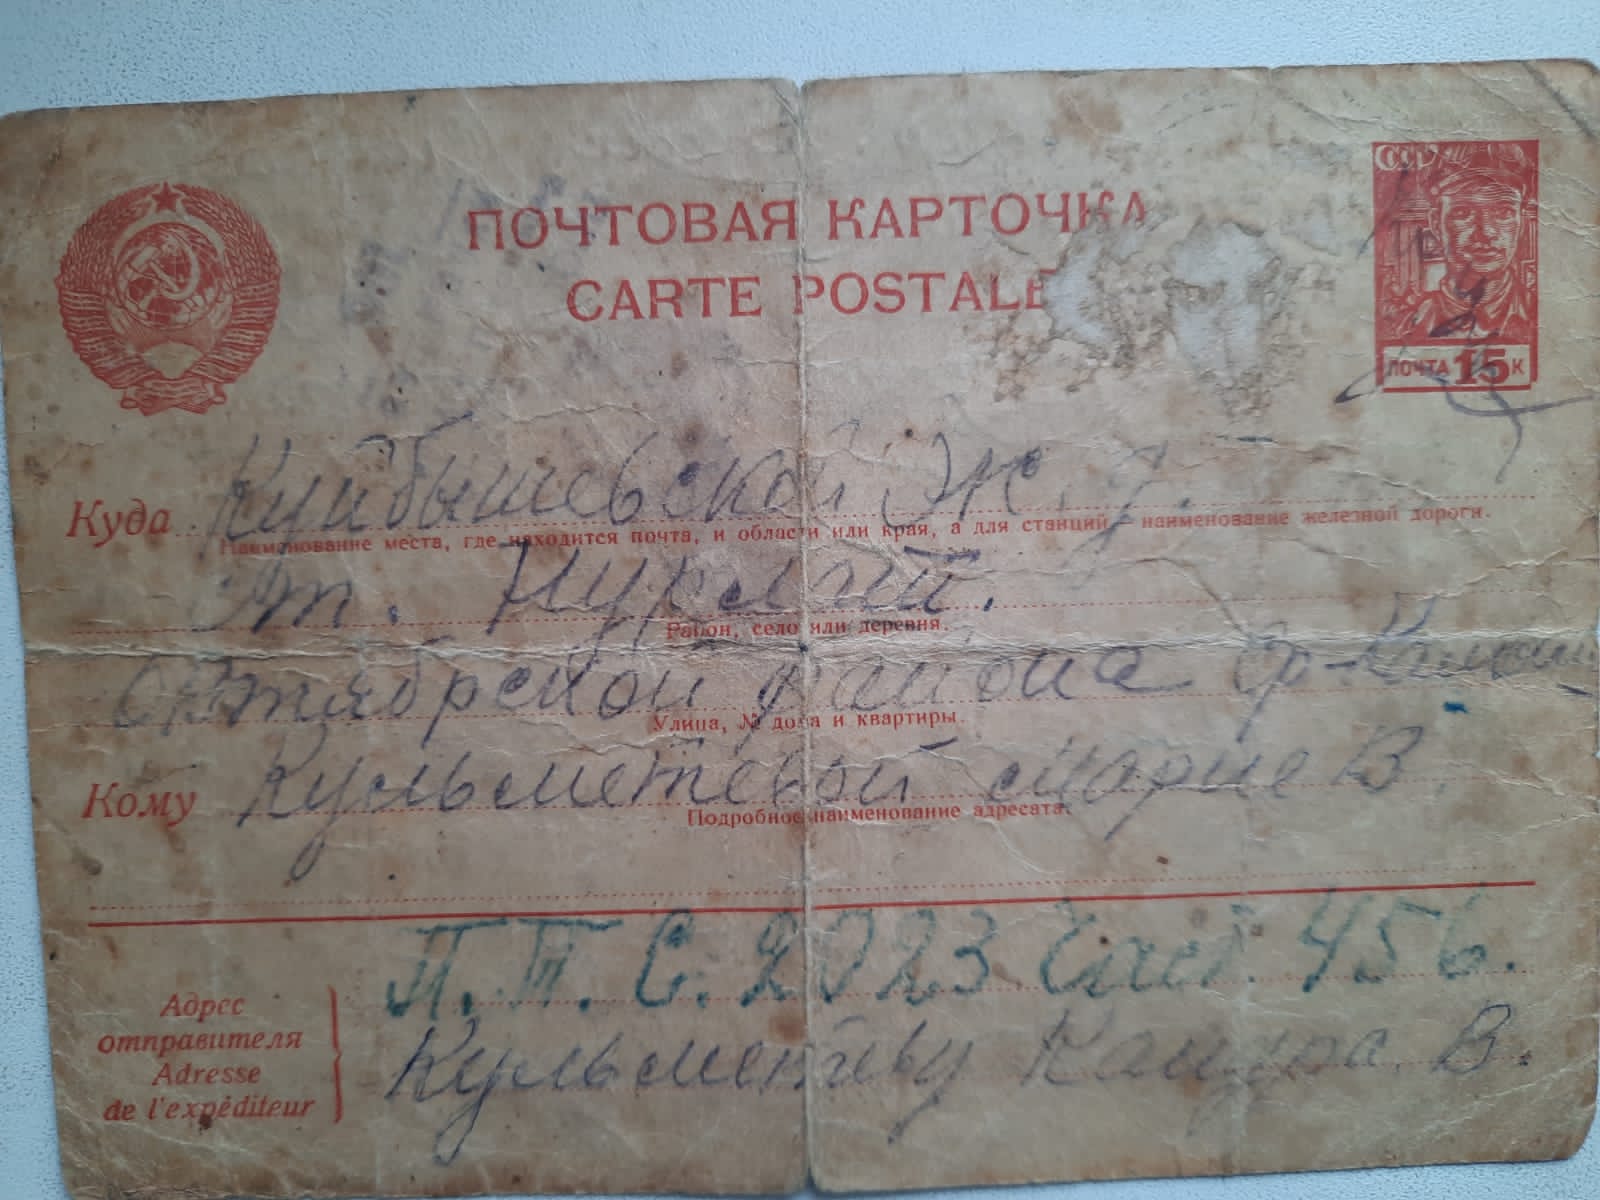 ПОЧТОВАЯ КАРТОЧКА
CARTE POSTALE
СССР
ПОЧТА 15 К
Куда Куйбышевской Ж. д.
Наименование места, где находится почта, и области или края, а для станций – наименование железной дороги.
Ст. Нурлат.
Район, село или деревня.
Октябрской района
Улица, № дома и квартиры.
Кому Кульметевой Марие В.
Подробное наименование адресата.
П. П. С. 2023 Част. 456.
Адрес
отправителя
Adresse
de l'expéditeur
Кульметьеву В.